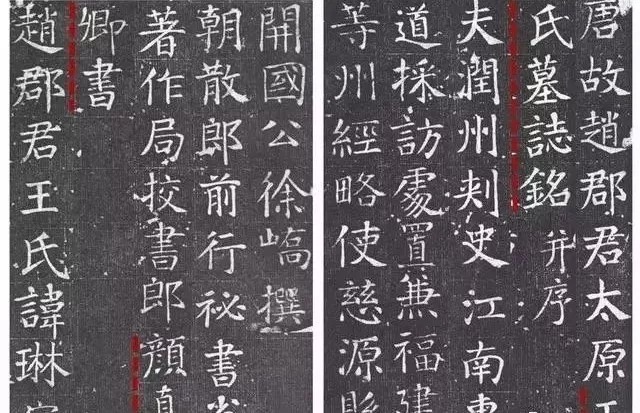 唐故趙郡君太原王
氏墓誌銘并序
夫潤州刺史江南東
道採訪處置兼福建
等州經略使慈源縣
開國公徐嶠撰
朝散郎前行祕書省
著作局挍書郎顏真
卿書
趙郡君王氏諱琳